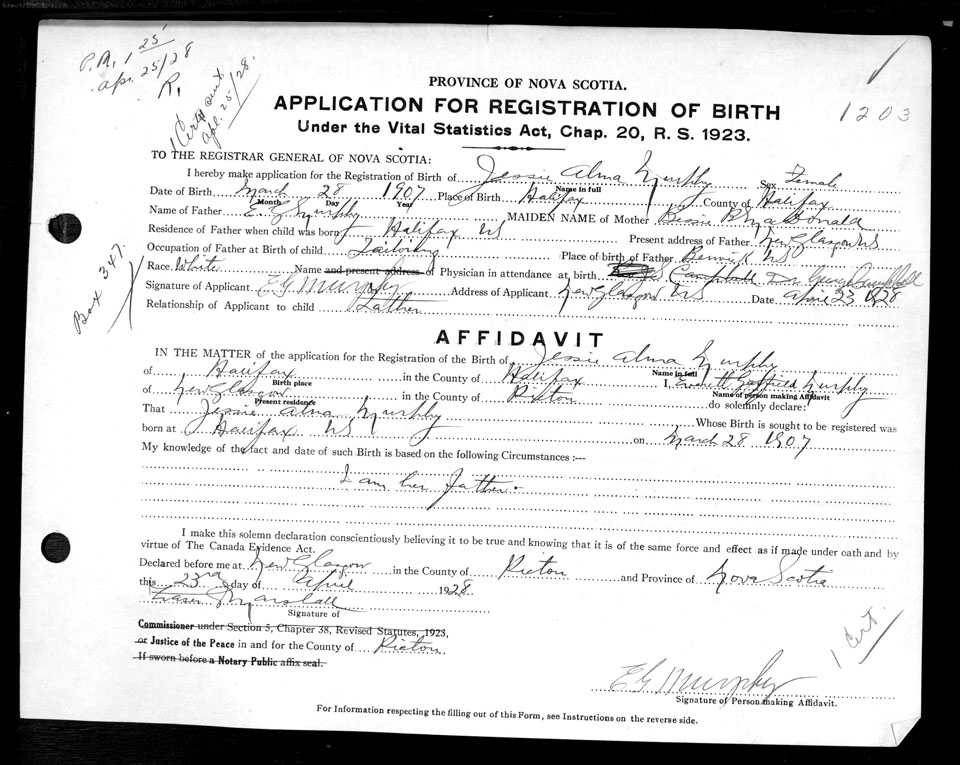 P.N. 1 25
Apr. 25/28
R.
1 Cert sent
Apl. 25/28.
1203
PROVINCE OF NOVA SCOTIA.
APPLICATION FOR REGISTRATION OF BIRTH
Under the Vital Statistics Act, Chap. 20, R. S. 1923.
TO THE REGISTRAR GENERAL OF NOVA SCOTIA:
I hereby make application for the Registration of Birth of Jessie Alma Murphy Sex Female
Name in full
Date of Birth March 28 1907 Place of Birth Halifax County of Halifax
Month Day Year
Name of Father E. G. Murphy MAIDEN NAME of Mother Bessie B. MacDonald
Residence of Father when child was born Halifax NS Present address of Father New Glasgow NS
Occupation of Father at Birth of child Tailoring Place of birth of Father Berwick NS
Race White Name and present address of Physician in attendance at birth Campbell Dr. George Campbell
Signature of Applicant E G Murphy Address of Applicant New Glasgow NS Date April 23 1928
Relationship of Applicant to child Father
Box 347
AFFIDAVIT
IN THE MATTER of the application for the Registration of the Birth of Jessie Alma Murphy
Name in full
of Halifax in the County of Halifax I, Everett Garfield Murphy
Birth place Name of person making Affidavit
of New Glasgow in the County of Picton do solemnly declare:
Present residence
That Jessie Alma Murphy Whose Birth is sought to be registered was
born at Halifax NS on March 28 1907
My knowledge of the fact and date of such Birth is based on the following Circumstances :—
I am her father.
I make this solemn declaration conscientiously believing it to be true and knowing that it is of the same force and effect as if made under oath and by
virtue of The Canada Evidence Act.
Declared before me at New Glasgow in the County of Picton and Province of Nova Scotia
this 23rd day of April 1928
Fraser Marshall
Signature of
Commissioner under Section 5, Chapter 38, Revised Statutes, 1923,
or Justice of the Peace in and for the County of Picton
If sworn before a Notary Public affix seal.
1 Cert
E G Murphy
Signature of Person making Affidavit.
For Information respecting the filling out of this Form, see Instructions on the reverse side.